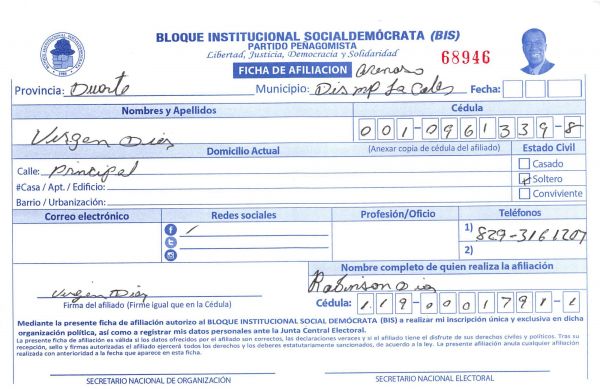 BLOQUE INSTITUCIONAL SOCIALDEMÓCRATA (BIS)
PARTIDO PEÑAGOMISTA
Libertad, Justicia, Democracia y Solidaridad
68946
FICHA DE AFILIACION Arenoso
Provincia: Duarte Municipio: Dis mp La Fecha:
Nombres y Apellidos Cédula
Virgen Dias 001-0961339-8
Domicilio Actual (Anexar copia de cédula del afiliado) Estado Civil
Calle: Principal Casado
#Casa / Apt. / Edificio: Soltero
Barrio / Urbanización: Conviviente
Correo electrónico Redes sociales Profesión/Oficio Teléfonos
1) 829-3161207
2)
Nombre completo de quien realiza la afiliación
Virgen Dias Robinson Dia
Firma del afiliado (Firme igual que en la Cédula) Cédula: 119-0001791-1
Mediante la presente ficha de afiliación autorizo al BLOQUE INSTITUCIONAL SOCIAL DEMÓCRATA (BIS) a realizar mi inscripción única y exclusiva en dicha
organización política, así como a registrar mis datos personales ante la Junta Central Electoral.
La presente ficha de afiliación es válida si los datos ofrecidos por el afiliado son correctos, las declaraciones veraces y si el afiliado tiene el disfrute de sus derechos civiles y políticos. Tras su
recepción, sello y firmas autorizadas el afiliado ejercerá todos los derechos y los deberes estatutariamente sancionados, de acuerdo a la ley. La presente afiliación anula cualquier afiliación
realizada con anterioridad a la fecha que aparece en esta ficha.
SECRETARIO NACIONAL DE ORGANIZACIÓN SECRETARIO NACIONAL ELECTORAL